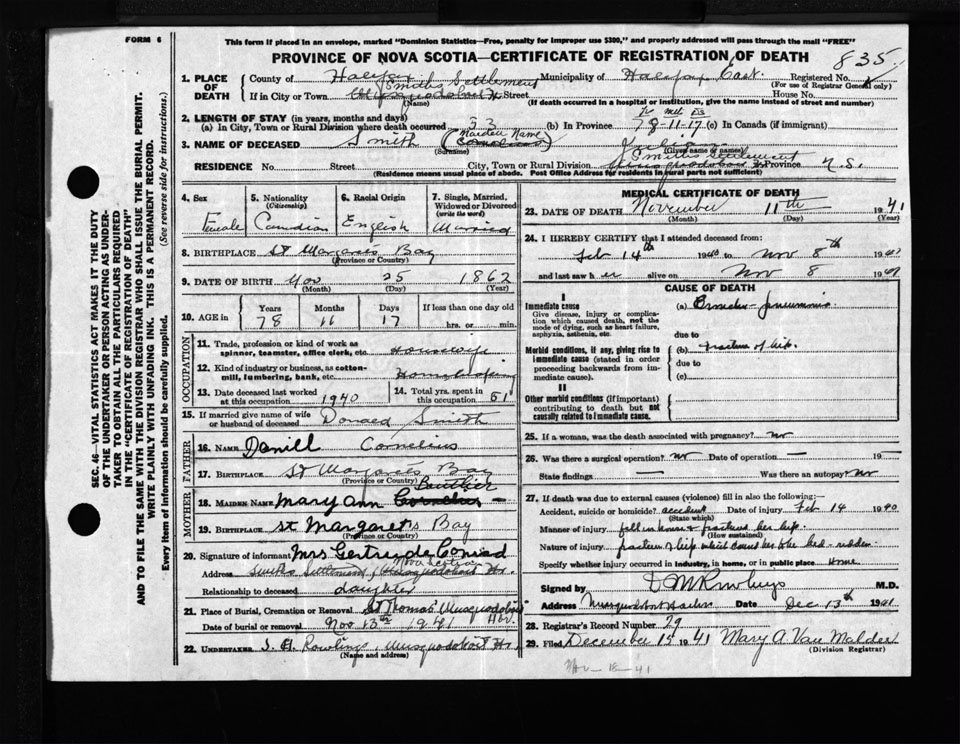 FORM 6
This form if placed in an envelope, marked "Dominion Statistics—Free, penalty for improper use $300," and properly addressed will pass through the mail "FREE"
PROVINCE OF NOVA SCOTIA—CERTIFICATE OF REGISTRATION OF DEATH
835
1. PLACE OF DEATH
County of Halifax Municipality of Halifax East Registered No.
(For use of Registrar General only)
Smiths Settlement
If in City or Town Musquodoboit Hr Street House No.
(Name) (If death occurred in a hospital or institution, give the name instead of street and number)
2. LENGTH OF STAY (in years, months and days)
(a) In City, Town or Rural Division where death occurred 53 (b) In Province 78-11-17 (c) In Canada (if immigrant)
3. NAME OF DECEASED Smith (Maiden Name Cornelius)
(Surname) (Given name or names)
RESIDENCE No. Street City, Town or Rural Division Smiths Settlement Musquodoboit Hr Province N.S.
(Residence means usual place of abode. Post Office Address for residents in rural parts not sufficient)
4. Sex Female
5. Nationality (Citizenship) Canadian
6. Racial Origin English
7. Single, Married, Widowed or Divorced (write the word) Married
8. BIRTHPLACE St Margarets Bay
(Province or Country)
9. DATE OF BIRTH Nov 25 1862
(Month) (Day) (Year)
10. AGE in Years 78 Months 11 Days 17 If less than one day old hrs. or min.
OCCUPATION
11. Trade, profession or kind of work as spinner, teamster, office clerk, etc. Housewife
12. Kind of industry or business, as cotton-mill, lumbering, bank, etc. Housekeeping
13. Date deceased last worked at this occupation 1940
14. Total yrs. spent in this occupation 51
15. If married give name of wife or husband of deceased Donald Smith
FATHER
16. NAME Danill Cornelius
17. BIRTHPLACE St Margarets Bay
(Province or Country)
MOTHER
18. MAIDEN NAME Mary Ann Boutlier
19. BIRTHPLACE St Margaret's Bay
(Province or Country)
20. Signature of informant Mrs Gertrude Conrad
Nova Scotia
Address Smiths Settlement, Musquodoboit Hr.
Relationship to deceased daughter
21. Place of Burial, Cremation or Removal St Thomas' Musquodoboit Hbr
Date of burial or removal Nov 13th 1941
22. UNDERTAKER Rowlings, Musquodoboit Hr.
(Name and address)
MEDICAL CERTIFICATE OF DEATH
23. DATE OF DEATH November 11th 1941
(Month) (Day) (Year)
24. I HEREBY CERTIFY that I attended deceased from:
Feb 14th 1940 to Nov 8th 1940
and last saw her alive on Nov 8 1940
CAUSE OF DEATH
I
Immediate cause
Give disease, injury or complication which caused death, not the mode of dying, such as heart failure, asphyxia, asthenia, etc.
(a) Broncho-pneumonia
due to
Morbid conditions, if any, giving rise to immediate cause (stated in order proceeding backwards from immediate cause).
(b) fracture of hip.
due to
(c)
II
Other morbid conditions (if important) contributing to death but not causally related to immediate cause.
25. If a woman, was the death associated with pregnancy? no
26. Was there a surgical operation? no Date of operation — 19—
State findings — Was there an autopsy? no
27. If death was due to external causes (violence) fill in also the following:—
Accident, suicide or homicide? accident Date of injury Feb 14 1940
(State which)
Manner of injury fell in house & fractured her hip.
(How sustained)
Nature of injury fracture of hip which caused her to be bed-ridden
Specify whether injury occurred in industry, in home, or in public place Home
Signed by M.D.
Address Musquodoboit Harbor Date Dec 13th 1941
28. Registrar's Record Number 29
29. Filed December 15 1941 Mary A. Van Malder
(Division Registrar)
SEC. 46—VITAL STATISTICS ACT MAKES IT THE DUTY
OF THE UNDERTAKER OR PERSON ACTING AS UNDER-
TAKER TO OBTAIN ALL THE PARTICULARS REQUIRED
IN THE "CERTIFICATE OF REGISTRATION OF DEATH"
AND TO FILE THE SAME WITH THE DIVISION REGISTRAR WHO SHALL ISSUE THE BURIAL PERMIT.
WRITE PLAINLY WITH UNFADING INK. THIS IS A PERMANENT RECORD.
Every item of information should be carefully supplied. (See reverse side for instructions.)